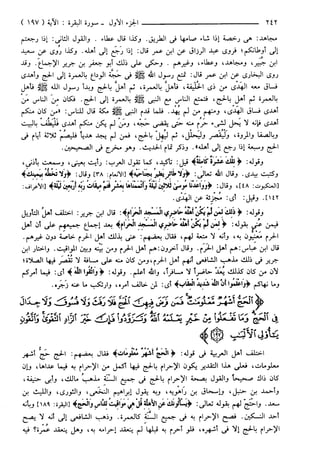 ٢٤٢ الجزء الأول ـ سورة البقرة : الآية ( ١٩٧ )
مجاهد : هي رخصة إذا شاء صامها في الطريق. وكذا قال عطاء . والقول الثاني : إذا رجعتم
إلى أوطانكم، فروى عبد الرزاق عن ابن عمر قال : إذا رَجَعَ إلى أهله. وكذا رُوي عن سعيد
ابن جُبير، ومجاهد، وعطاء، وغيرهم . وحكى على ذلك أبو جعفر بن جرير الإجماعَ. وقد
روى البخاري عن ابن عمر قال : تمتع رسول الله ﷺ في حَجَّة الوداع بالعمرة إلى الحج وأهدى
فساق معه الهَدْي من ذي الحُلَيفة، فأهلّ بالعمرة، ثم أهلّ بالحج وبدأ رسول الله ﷺ فأهل
بالعمرة ثم أهل بالحج، فتمتع الناس مع النبي ﷺ بالعمرة إلى الحج. فكان من الناس مَنْ
أهدى فساق الهَدْي، ومنهم من لم يُهْد. فلما قدم النبي ﷺ مكة قال للناس : «من كان منكم
أهدى فإنه لا يَحل لشيء حَرُم منه حتى يقضي حَجّه، ومَنْ لم يكن منكم أهدى فَلْيَطُفْ بالبيت
وبالصفا والمروة، ولْيُقَصِّر ولْيَحْلل، ثم ليُهِلّ بالحج، فمن لم يجد هدياً فليصُمْ ثلاثة أيام في
الحج وسبعة إذا رجع إلى أهله». وذكر تمام الحديث. وهو مخرج في الصحيحين.
وقوله : ﴿ تِلْكَ عَشَرَةٌ كَامِلَةٌ ﴾ قيل : تأكيد، كما تقول العرب : رأيت بعيني، وسمعت بأذني،
وكتبت بيدي. وقال الله تعالى : ﴿ وَلَا طَائِرٍ يَطِيرُ بِجَنَاحَيْهِ ﴾ [الأنعام: ٣٨] وقال : ﴿ وَلَا تَخُطُّهُ بِيَمِينِكَ ﴾
[العنكبوت: ٤٨]، وقال : ﴿ وَوَاعَدْنَا مُوسَىٰ ثَلَاثِينَ لَيْلَةً وَأَتْمَمْنَاهَا بِعَشْرٍ فَتَمَّ مِيقَاتُ رَبِّهِ أَرْبَعِينَ لَيْلَةً ﴾ [الأعراف:
١٤٢]. وقيل : أي : مُجْزئة عن الهَدْي.
وقوله : ﴿ ذَٰلِكَ لِمَن لَّمْ يَكُنْ أَهْلُهُ حَاضِرِي الْمَسْجِدِ الْحَرَامِ ﴾ : قال ابن جرير : اختلف أهلُ التأويل
فيمن عني بقوله : ﴿ لِمَن لَّمْ يَكُنْ أَهْلُهُ حَاضِرِي الْمَسْجِدِ الْحَرَامِ ﴾ بعد إجماع جميعهم على أن أهل
الحرم معنيون به، وأنه لا متعة لهم، فقال بعضهم : عنى بذلك أهل الحرم خاصة دون غيرهم.
قال ابن عباس : هم أهل الحَرم. وقال آخرون : هم أهل الحرم ومن بينه وبين المواقيت. واختار ابن
جرير في ذلك مذهب الشافعي أنهم أهل الحرم، ومن كان منه على مسافة لا تُقْصَر فيها الصلاة؛
لأن من كان كذلك يُعَدّ حاضراً لا مسافراً، والله أعلم. وقوله : ﴿ وَاتَّقُوا اللَّهَ ﴾ أي : فيما أمركم
وما نهاكم ﴿ وَاعْلَمُوا أَنَّ اللَّهَ شَدِيدُ الْعِقَابِ ﴾ أي : لمن خالف أمره، وارتكب ما عنه زَجَره.
﴿ الْحَجُّ أَشْهُرٌ مَّعْلُومَاتٌ فَمَن فَرَضَ فِيهِنَّ الْحَجَّ فَلَا رَفَثَ وَلَا فُسُوقَ وَلَا جِدَالَ
فِي الْحَجِّ وَمَا تَفْعَلُوا مِنْ خَيْرٍ يَعْلَمْهُ اللَّهُ وَتَزَوَّدُوا فَإِنَّ خَيْرَ الزَّادِ التَّقْوَىٰ وَاتَّقُونِ
يَا أُولِي الْأَلْبَابِ ﴿١٩٧﴾
اختلف أهل العربية في قوله : ﴿ الْحَجُّ أَشْهُرٌ مَّعْلُومَاتٌ ﴾ فقال بعضهم : الحج حَجُّ أشهر
معلومات، فعلى هذا التقدير يكون الإحرام بالحج فيها أكمل من الإحرام به فيما عداها، وإن
كان ذاك صحيحاً والقول بصحة الإحرام بالحج في جميع السنَّة مذهب مالك، وأبي حنيفة،
وأحمد بن حنبل، وإسحاق بن راهَوَيه، وبه يقول إبراهيم النَّخَعي، والثوري، والليث بن
سعد. واحتجّ لهم بقوله تعالى : ﴿ يَسْأَلُونَكَ عَنِ الْأَهِلَّةِ قُلْ هِيَ مَوَاقِيتُ لِلنَّاسِ وَالْحَجِّ ﴾ [البقرة: ١٨٩] وبأنه
أحد النسكين. فصح الإحرام به في جميع السَّنَة كالعمرة. وذهب الشافعي إلى أنه لا يصح
الإحرام بالحج إلا في أشهره، فلو أحرم به قبلها لم ينعقد إحرامه به، وهل ينعقد عُمْرة؟ فيه